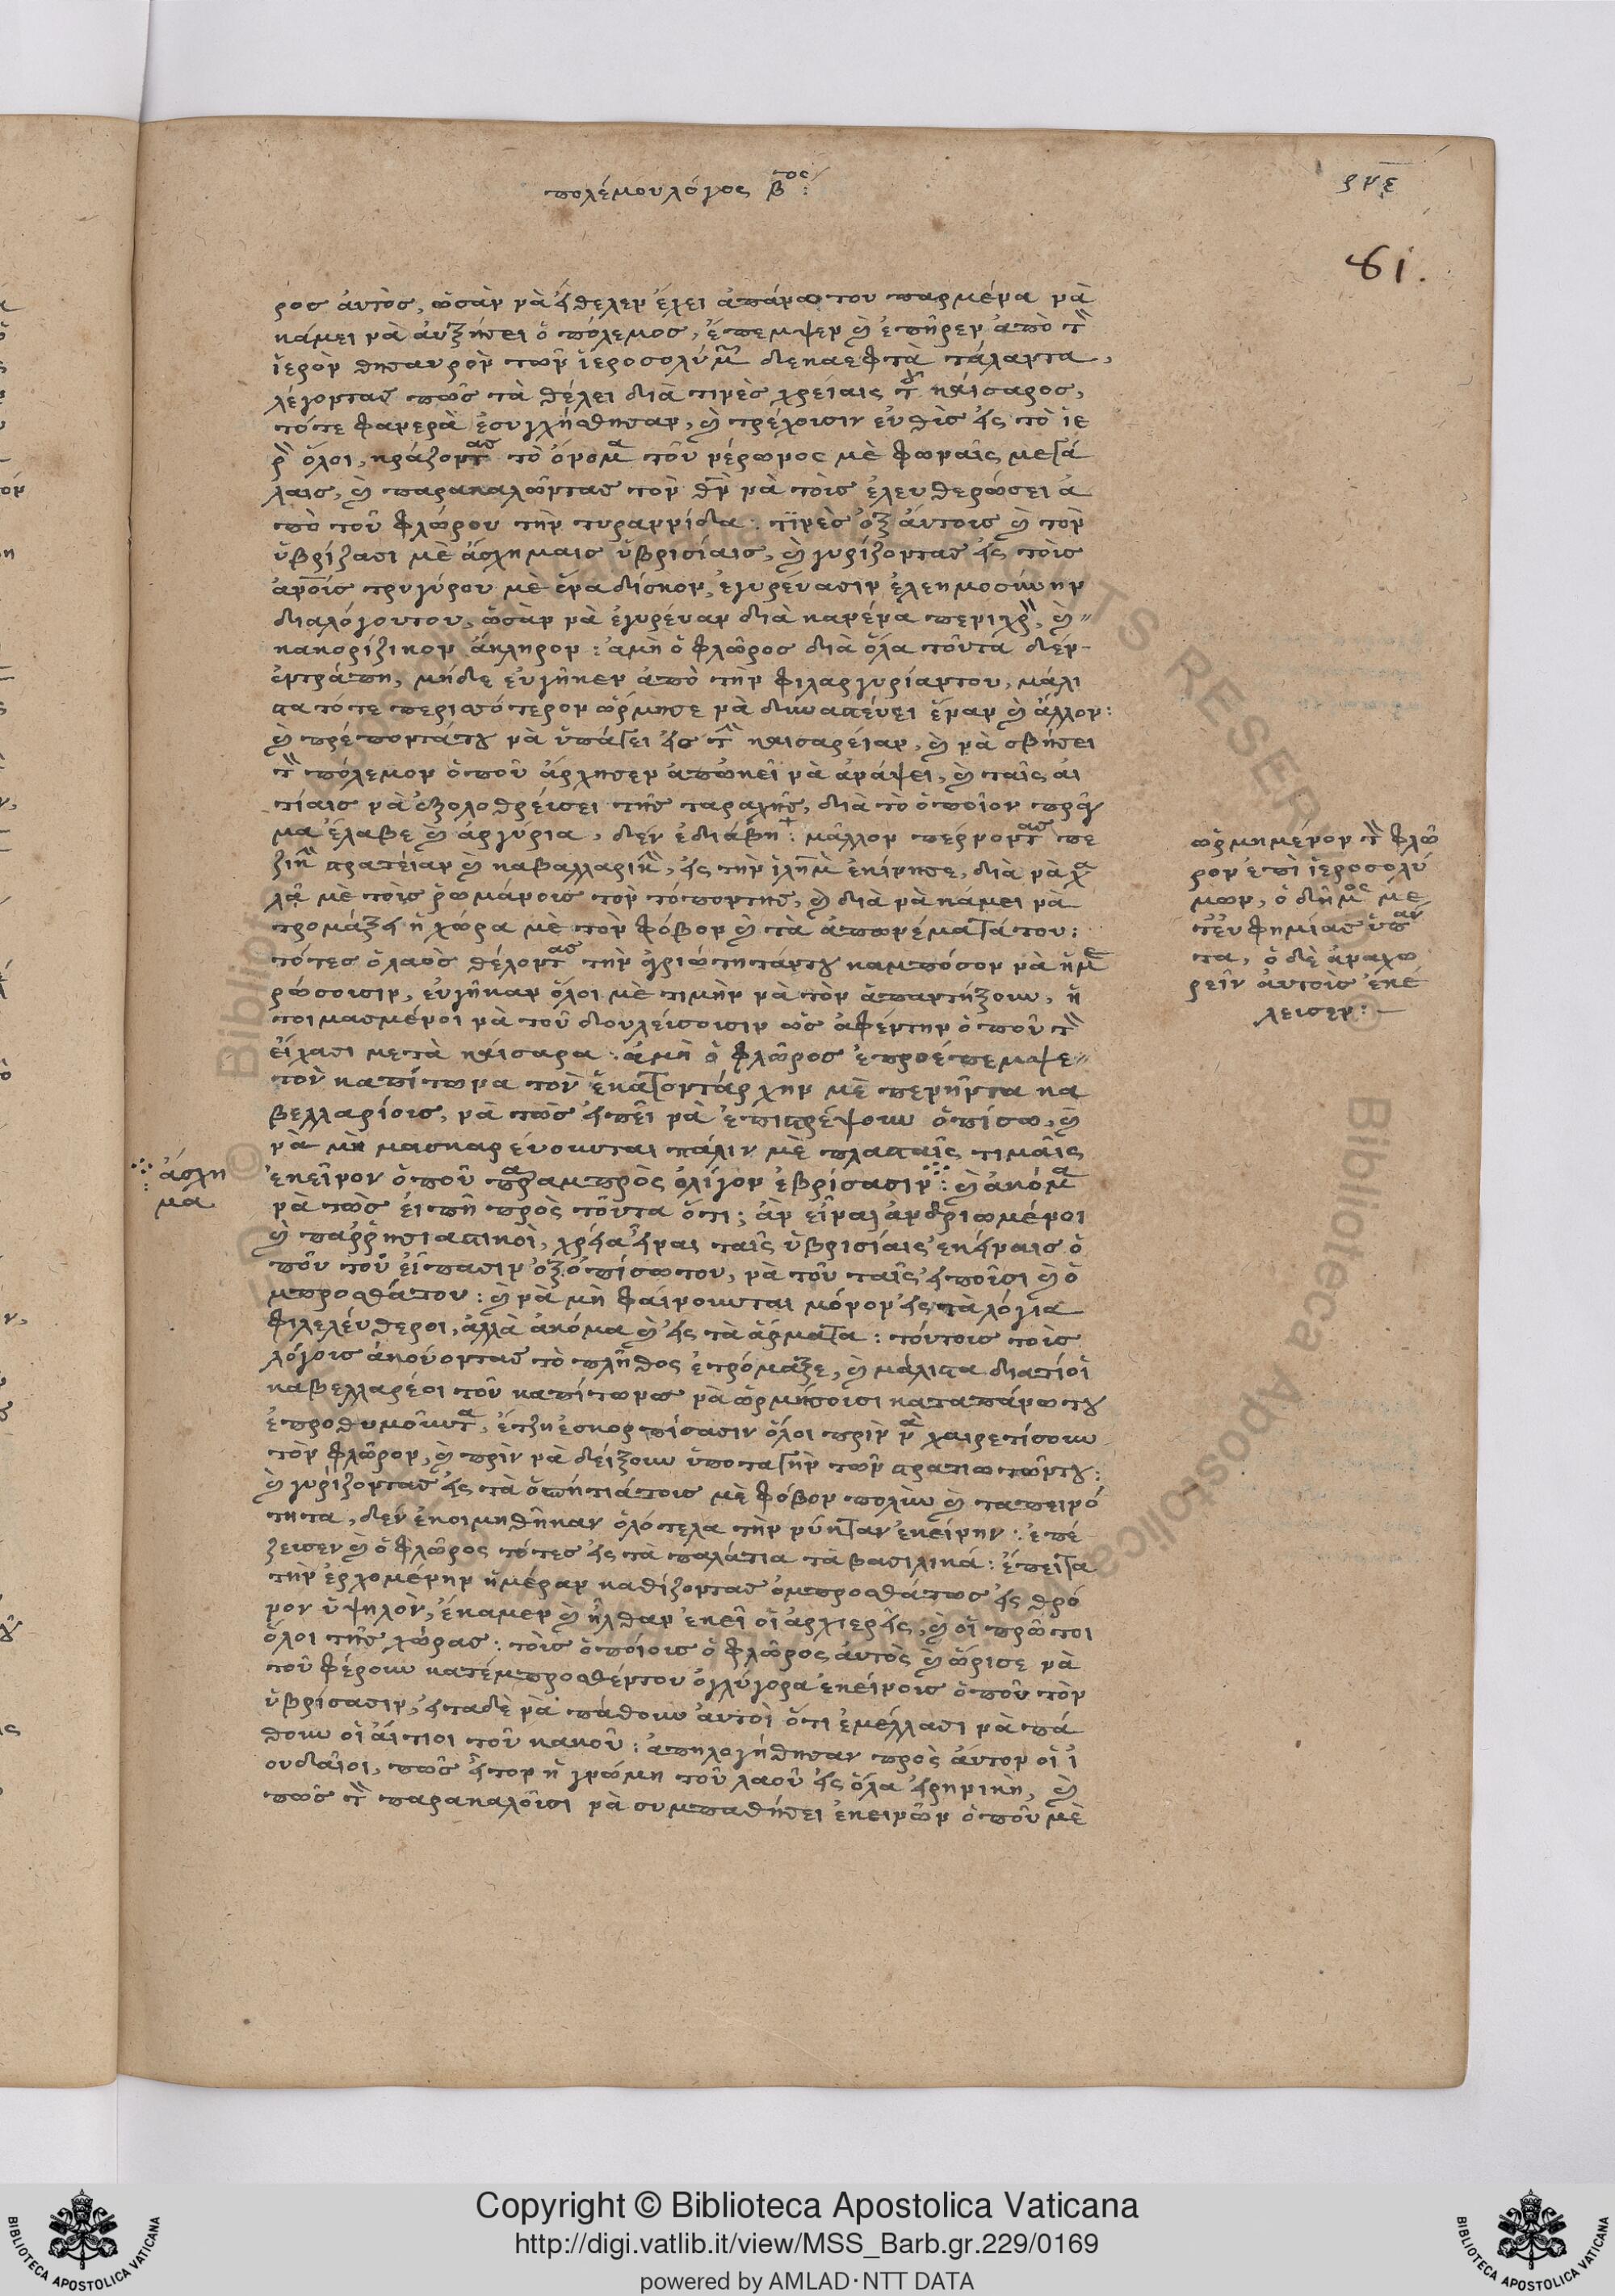 πολέμου λόγος β^ος:
ρνε
81.
ρος ἀυτὸς, ὡσὰν νὰ ἤθελεν ἔχει ἀπάνω του παρμένα νὰ
κάμει νὰ ἀυξήσει ὁ πόλεμος, ἔπεμψεν ϗ ἐπῆρεν ἀπὸ τὸν
ἱερὸν θησαυρὸν τῶν ἱεροσολύμων δεκαεφτὰ τάλαντα,
λέγοντας πῶς τὰ θέλει διὰ τινὲς χρείαις τοῦ καίσαρος,
τότε φανερὰ ἐσυγχήσθησαν, ϗ τρέχουσιν ἐυθὺς εἰς τὸ ἱε
ρὸν ὅλοι, κράζοντας τὸ ὄνομα τοῦ νέρωνος μὲ φωναῖς μεγά
λαις, ϗ παρακαλῶντας τὸν θν νὰ τοὺς ἐλευθερώσει ἀ
πὸ τοῦ φλώρου τὴν τυραννίδα: τινὲς ὀξ ἀυτους ϗ τὸν
ὑβρίζασι μὲ ἄσχημαις ὑβρισίαις, ϗ γυρίζοντας εἰς τοὺς
ἀνοὺς τρυγύρου μὲ ἕνα δίσκον, ἐγυρέυασιν ἐλεημοσύνην
διαλόγουτου, ὡσὰν νὰ ἐγυρέυαν διὰ κανένα περιχρὸν, ϗ
κακορίζικον ἄκληρον: ἀμὴ ὁ φλῶρος διὰ ὅλα τοῦτα δὲν
ἐντράπη, μήδε ἐυγῆκεν ἀπὸ τὴν φιλαργυρίαντου, μάλι
στα τότε περισσότερον ὥρμησε νὰ δυναστέυει ἕναν ϗ ἄλλον:
ϗ πρέποντάτου νὰ ὑπάγει εἰς τὴν καισαρείαν, ϗ νὰ σβήσει
τὸν πόλεμον ὁποῦ ἄρχησεν ἀπωκεῖ νὰ ἀνάψει, ϗ ταῖς ἀι
τίαις νὰ ἐξολοθρέυσει τῆς ταραχῆς, διὰ τὸ ὁποῖον πράγ
μα ἔλαβε ϗ ἀργυρια, δὲν ἐδιάβη: μᾶλλον πέρνοντας πε
ζικὴν στρατείαν ϗ καβαλλαρικὴν, εἰς τὴν ἰλημ ἐκίνησε, διὰ νὰ χα
λᾶ μὲ τοὺς ῥωμάνους τὸν τόποντης, ϗ διὰ νὰ κάμει νὰ
τρομάξει ἡ χώρα μὲ τὸν φόβον ϗ τὰ ἀπωνέματάτου:
τότες ὁ λαὸς θέλοντας τὴν ἀγριώτητάντου καμπόσον νὰ ἡμε
ρώσουσιν, ἐυγῆκαν ὅλοι μὲ τιμὴν νὰ τὸν ἀπαντήξουν, ἡ
τοιμασμένοι νὰ τοῦ δουλέυσουσιν ὡς ἀφέντην ὁποῦ τὸν
εἴχασι μετὰ καίσαρα: ἀμὴ ὁ φλῶρος ἐπροέπεμψε
τὸν καπίτωνα τὸν ἑκατοντάρχην μὲ πενῆντα κα
βελλαρίους, νὰ τῶς εἰπεῖ νὰ ἐπιστρέψουν ὀπίσω, ϗ
νὰ μὴ μασκαρέυουνται πάλιν μὲ πλασταῖς τιμαῖς
ἐκεῖνον ὁποῦ πρὰ μπρὸς ὀλίγον ἐβρίσασιν: ϗ ἀκόμα
νὰ τῶς εἰπῆ πρὸς τοῦτα ὅτι; ἂν εἶναι ἀνδριωμένοι
ϗ παῤῥησιαστικοὶ, χρεία εἶναι ταῖς ὑβρισίαις ἐκείναις ὁ
ποῦ τοῦ εἴπασιν ὀξοπίσωτου, νὰ τοῦ ταῖς εἰποῦσι ϗ ὀ
μπροσθάτου: ϗ νὰ μὴ φαίνουνται μόνον εἰς τὰ λόγια
φιλελέυθεροι, ἀλλὰ ἀκόμα ϗ εἰς τὰ ἄρματα: τούτους τοὺς
λόγους ἀκούοντας τὸ πλῆθος ἐτρόμαξε, ϗ μάλιστα διατί οἱ
καβελλαρέοι τοῦ καπίτωνος νὰ ὡρμήσουσι καταπάνωτου
ἐπροθυμοῦντα, ἔτζη ἐσκορπίσασιν ὅλοι πρὶν νὰ χαιρετίσουν
τὸν φλῶρον, ϗ πρὶν νὰ δείξουν ὑποταγὴν τῶν στρατιωτῶντου:
ϗ γυρίζοντας εἰς τὰ ὀσπήτιάτους μὲ φόβον πολὺν ϗ ταπεινό
τητα, δὲν ἐκοιμηθῆκαν ὁλότελα τὴν νύκταν ἐκείνην: ἐπέ
ζευσεν ϗ ὁ φλῶρος τότες εἰς τὰ παλάτια τὰ βασιλικά: ἔπειτα
τὴν ἐρχομένην ἡμέραν καθίζοντας ὀμπροσθάτως εἰς θρό
νον ὑψηλὸν, ἐκαμεν ϗ ἦλθαν ἐκεῖ οἱ ἀρχιερεῖς, ϗ οἱ πρῶτοι
ὅλοι τῆς χώρας: τοὺς ὁποίους ὁ φλῶρος ἀυτὸς ϗ ὥρισε νὰ
τοῦ φέρουν κατέμπροσθέντου ὀγλύγορα ἐκείνους ὁποῦ τὸν
ὑβρίσασιν, εἴταδὲ νὰ πάθουν ἀυτοὶ ὅτι ἐμέλλασι νὰ πά
θουν οἱ ἄιτιοι τοῦ κακοῦ: ἀπηλογήθησαν πρὸς ἀυτον οἱ ἰ
ουδαῖοι, πῶς εἶτον ἡ γνώμη τοῦ λαοῦ εἰς ὅλα εἰρηνικὴ, ϗ
πῶς τὸν παρακαλοῦσι νὰ συμπαθήσει ἐκεινῶν ὁποῦ μὲ
ὡρμημένον τὸν φλῶ
ρον ἐπὶ ἱεροσολύ
μων, ὁ δῆμος με
τ' ἐυφημίας ὑπαν
τα, ὁ δὲ ἀναχω
ρεῖν ἀυτοὺς ἐκέ
λευσεν:
ἄσχη
μα
Copyright © Biblioteca Apostolica Vaticana
http://digi.vatlib.it/view/MSS_Barb.gr.229/0169
powered by AMLAD·NTT DATA
BIBLIOTECA APOSTOLICA VATICANA
BIBLIOTECA APOSTOLICA VATICANA